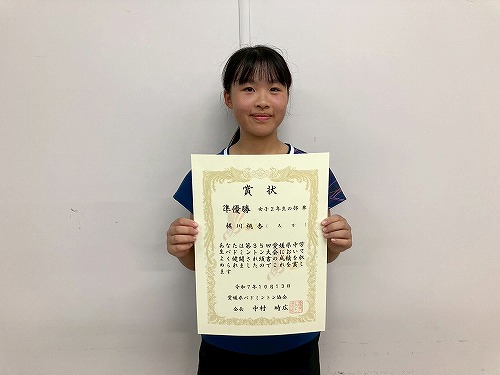 賞状
準優勝 女子２年生の部 単
あなたは第３５回愛媛県中学
生バドミントン大会において
よく健闘され頭書の成績を収
められましたのでこれを賞し
ます
令和７年１０月１３日
愛媛県バドミントン協会
会長 中村 時広